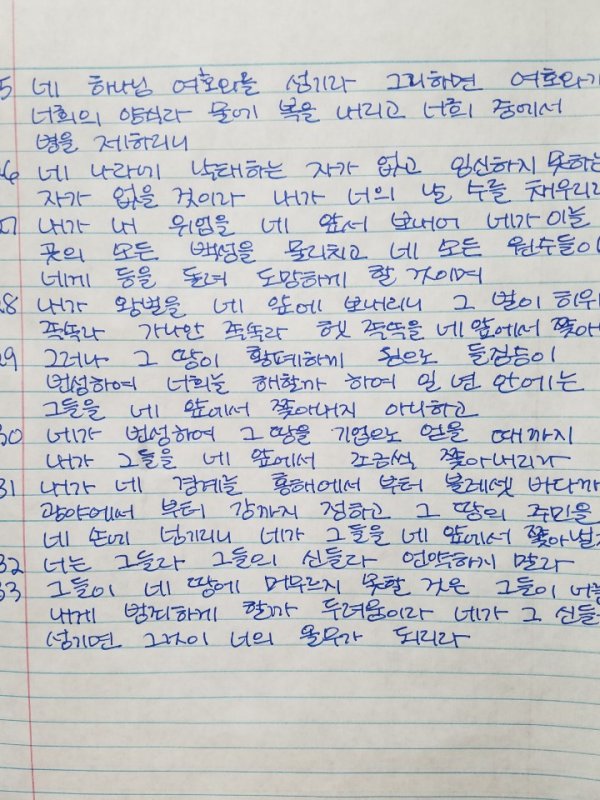 5 네 하나님 여호와를 섬기라 그리하면 여호와가
너희의 양식과 물에 복을 내리고 너희 중에서
병을 제하리니
26 네 나라에 낙태하는 자가 없고 임신하지 못하는
자가 없을 것이라 내가 너의 날 수를 채우리라
27 내가 내 위엄을 네 앞서 보내어 네가 이를
곳의 모든 백성을 물리치고 네 모든 원수들이
네게 등을 돌려 도망하게 할 것이며
28 내가 왕벌을 네 앞에 보내리니 그 벌이 히위
족속과 가나안 족속과 헷 족속을 네 앞에서 쫓아
29 그러나 그 땅이 황폐하게 됨으로 들짐승이
번성하여 너희를 해할까 하여 일 년 안에는
그들을 네 앞에서 쫓아내지 아니하고
30 네가 번성하여 그 땅을 기업으로 얻을 때까지
내가 그들을 네 앞에서 조금씩 쫓아내리라
31 내가 네 경계를 홍해에서 부터 블레셋 바다까
광야에서 부터 강까지 정하고 그 땅의 주민을
네 손에 넘기리니 네가 그들을 네 앞에서 쫓아낼지
32 너는 그들과 그들의 신들과 언약하지 말라
33 그들이 네 땅에 머무르지 못할 것은 그들이 너를
내게 범죄하게 할까 두려움이라 네가 그 신들
섬기면 그것이 너의 올무가 되리라